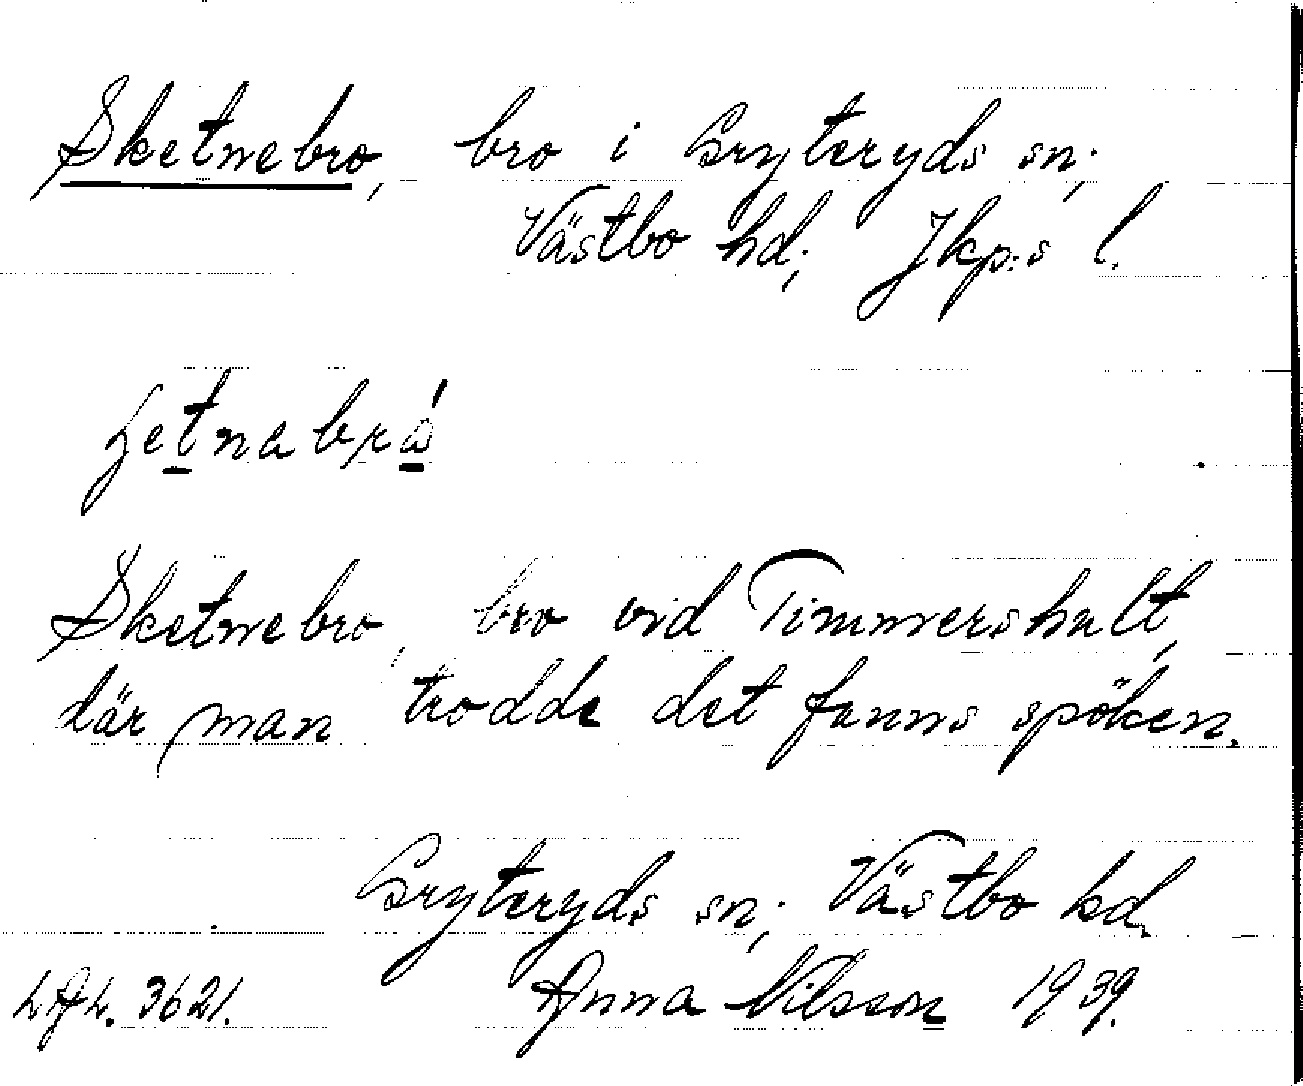 Sketnebro, bro i Gryteryds sn;
Västbo hd; Jkp:s l.
ʒetnabrá
Sketnebro, bro vid Timmershult,
där man trodde det fanns spöken.
Gryteryds sn; Västbo hd.
Anna Nilsson 1939.
3621.